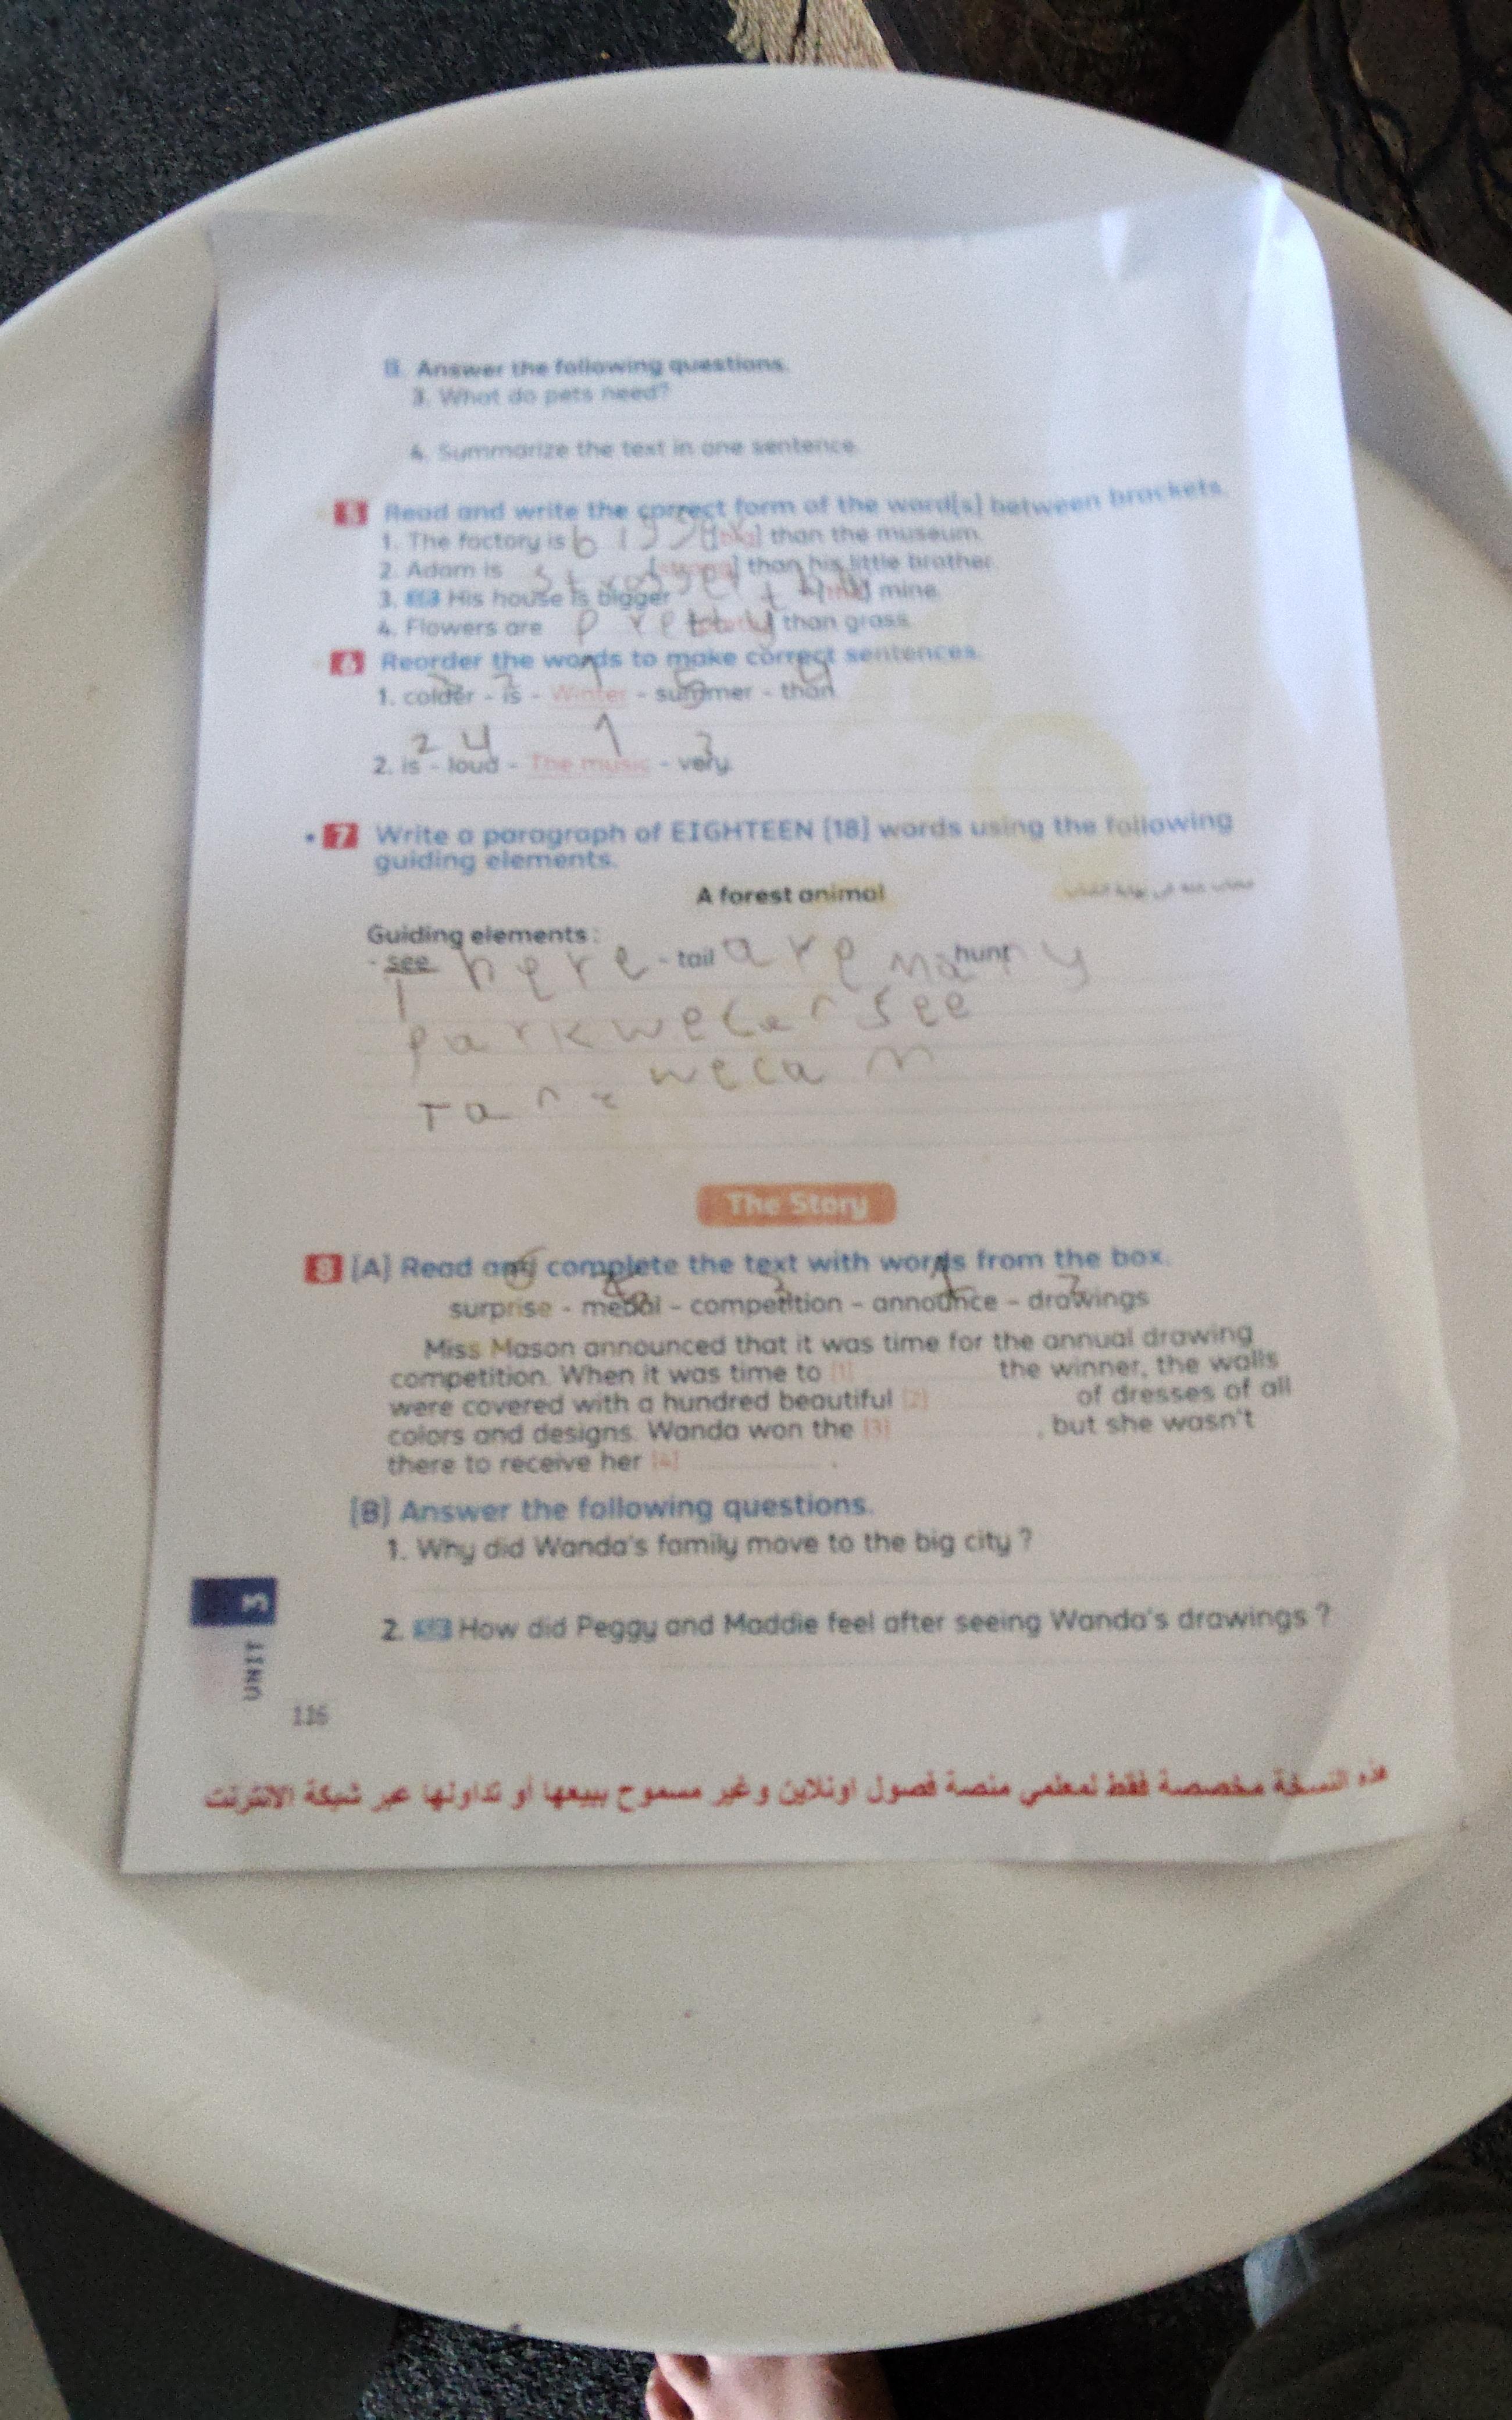 B. Answer the following questions.
3. What do pets need?
4. Summarize the text in one sentence.
5 Read and write the correct form of the word(s) between brackets.
1. The factory is bigger [big] than the museum.
2. Adam is [strong] than his little brother.
3. His house is bigger mine.
4. Flowers are pretty than grass.
6 Reorder the words to make correct sentences.
3 2 1 5 4
1. colder - is - Winter - summer - than
2 4 1 3
2. is - loud - The music - very.
7 Write a paragraph of EIGHTEEN [18] words using the following
guiding elements.
A forest animal
Guiding elements:
- see - tail hunt
There are many
park we can see
we can
The Story
8 [A] Read and complete the text with words from the box.
surprise - medal - competition - announce - drawings
Miss Mason announced that it was time for the annual drawing
competition. When it was time to [1] the winner, the walls
were covered with a hundred beautiful [2] of dresses of all
colors and designs. Wanda won the [3] , but she wasn't
there to receive her [4] .
[B] Answer the following questions.
1. Why did Wanda's family move to the big city ?
2. How did Peggy and Maddie feel after seeing Wanda's drawings ?
UNIT 3
116
هذه النسخة مخصصة فقط لمعلمي منصة فصول اونلاين وغير مسموح ببيعها أو تداولها عبر شبكة الانترنت